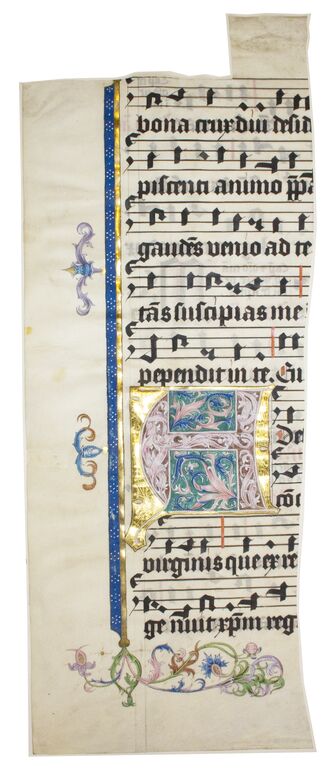 bona crux diu desid
piscenti animo ppa
gaudēs venio ad te
tās suscipias me
pependit in te. Gl
de
cō
virginis que ex re
ge nuit xpm reg